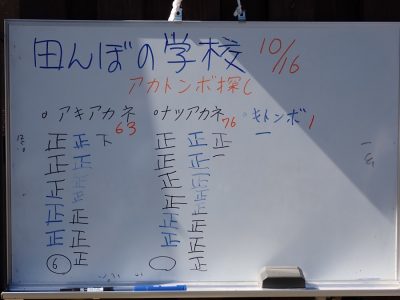 田んぼの学校 10/16
アカトンボ探し
○アキアカネ 63 ○ナツアカネ 76 ○キトンボ 1
正 正 下 正 正 正 一
正 正 正 正 一
正 正 正 正
正 正 正 正
正 正 正 正
正 正 正 正
6 正 正